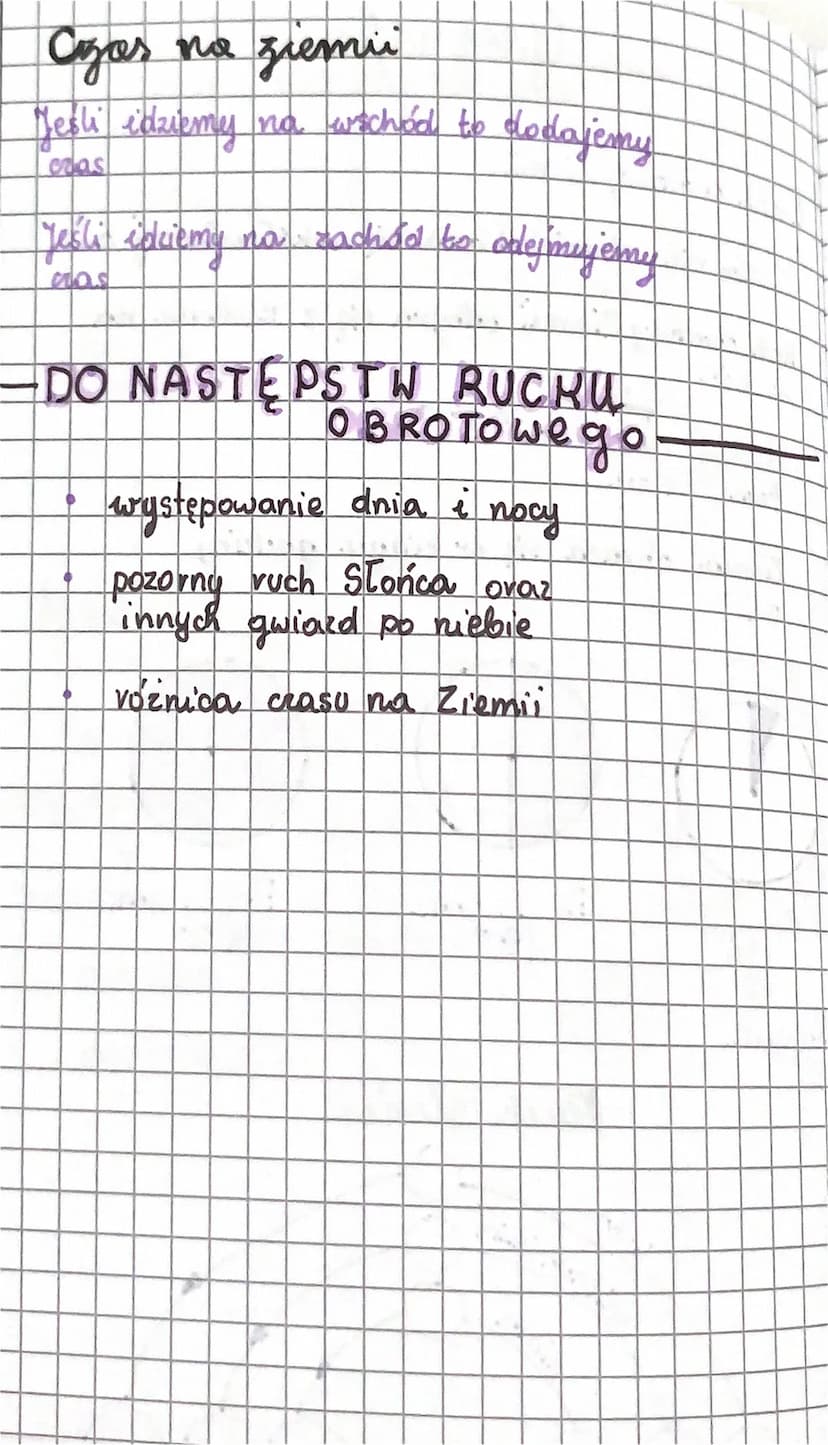 Czas na ziemii
Jeśli idziemy na wschód to dodajemy
czas
Jeśli idziemy na zachód to odejmujemy
czas
— DO NASTĘPSTW RUCHU
OBROTOWego —
• występowanie dnia i nocy
• pozorny ruch Słońca oraz
innych gwiazd po niebie
• różnica czasu na Ziemii